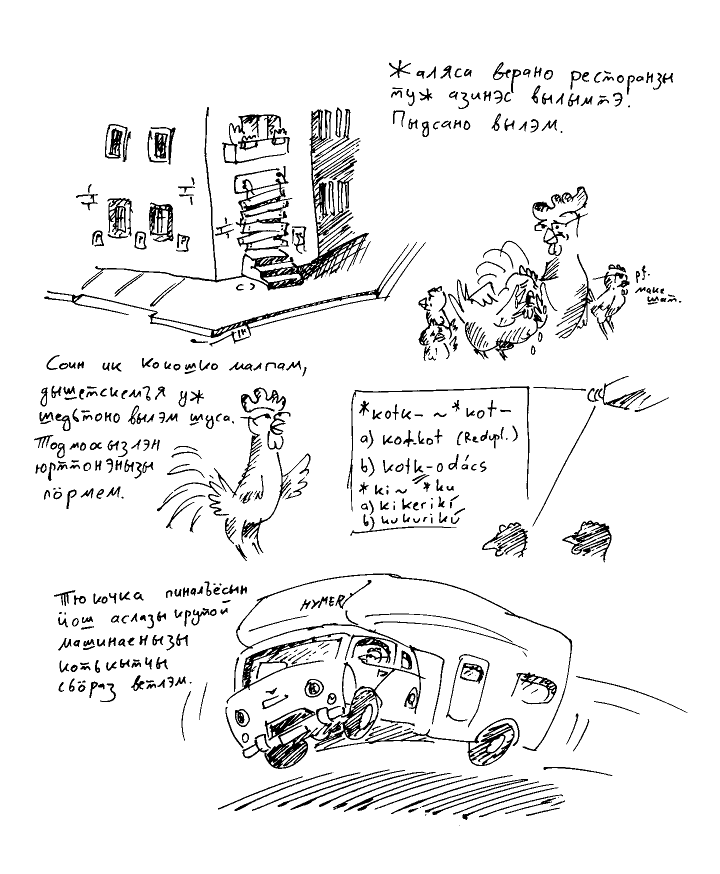 Жаляса верано ресторанзы
туж азинэс вылымтэ.
Пыдсано вылэм.
рş.
маке
шат.
Соин ик Кокошко малпам,
дышетскемъя уж
шедьтоно вылэм шуса.
Тодмоосызлэн
юрттонэнызы
пöрмем.
*kotk- ~ *kot-
a) kotkot (Redupl.)
b) kotk-odács
*ki ~ *ku
a) kikerikí
b) kukurikú
Тюкочка пиналъёсын
ӵош аслазы крутой
машинаенызы
коть кытчы
сьöраз ветлэм.
HYMER